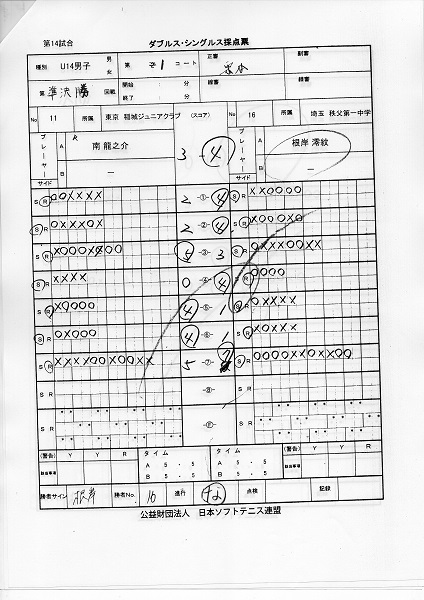 第14試合
ダブルス・シングルス採点票
種別 U14男子 男 女 第 コート 正審 副審
第 準決勝 回戦 開始 : 終了 : 線審 線審
No 11 所属 東京 稲城ジュニアクラブ (スコア) No 16 所属 埼玉 秩父第一中学
プレーヤー A 南 龍之介 3-4 プレーヤー A 根岸 澪紋
B - B -
サイド サイド
S R ooxxxx 2 -①- 4 S R xxoooo
S R oxxxox 2 -②- 4 S R xoooxo
S R 5 -③- 3 S R
S R xxxx 0 -④- 4 S R oooo
S R xoooo 4 -⑤- 1 S R oxxxx
S R oxooo 4 -⑥- 1 S R xoxxx
S R xxxxooxooxx 5 -⑦- S R
S R -⑧- S R
S R -Ⓕ- S R
S R S R
S R S R
(警告) Y Y R タイム タイム (警告) Y Y R
該当事項 A 5 . 5 5 . 5 該当事項
B 5 . 5 5 . 5
勝者サイン 根岸 勝者No. 16 進行 点検 記録
公益財団法人 日本ソフトテニス連盟